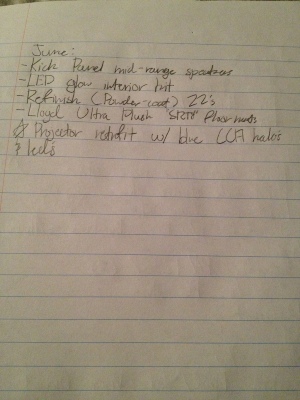 June:
- Kick Panel mid-range speakers
- LED glow interior kit
- Refinish (Powder-coat) 22's
- Lloyd Ultra Plush "SRT8" floor mats
Projector retrofit w/ blue CCFL halos
& leds